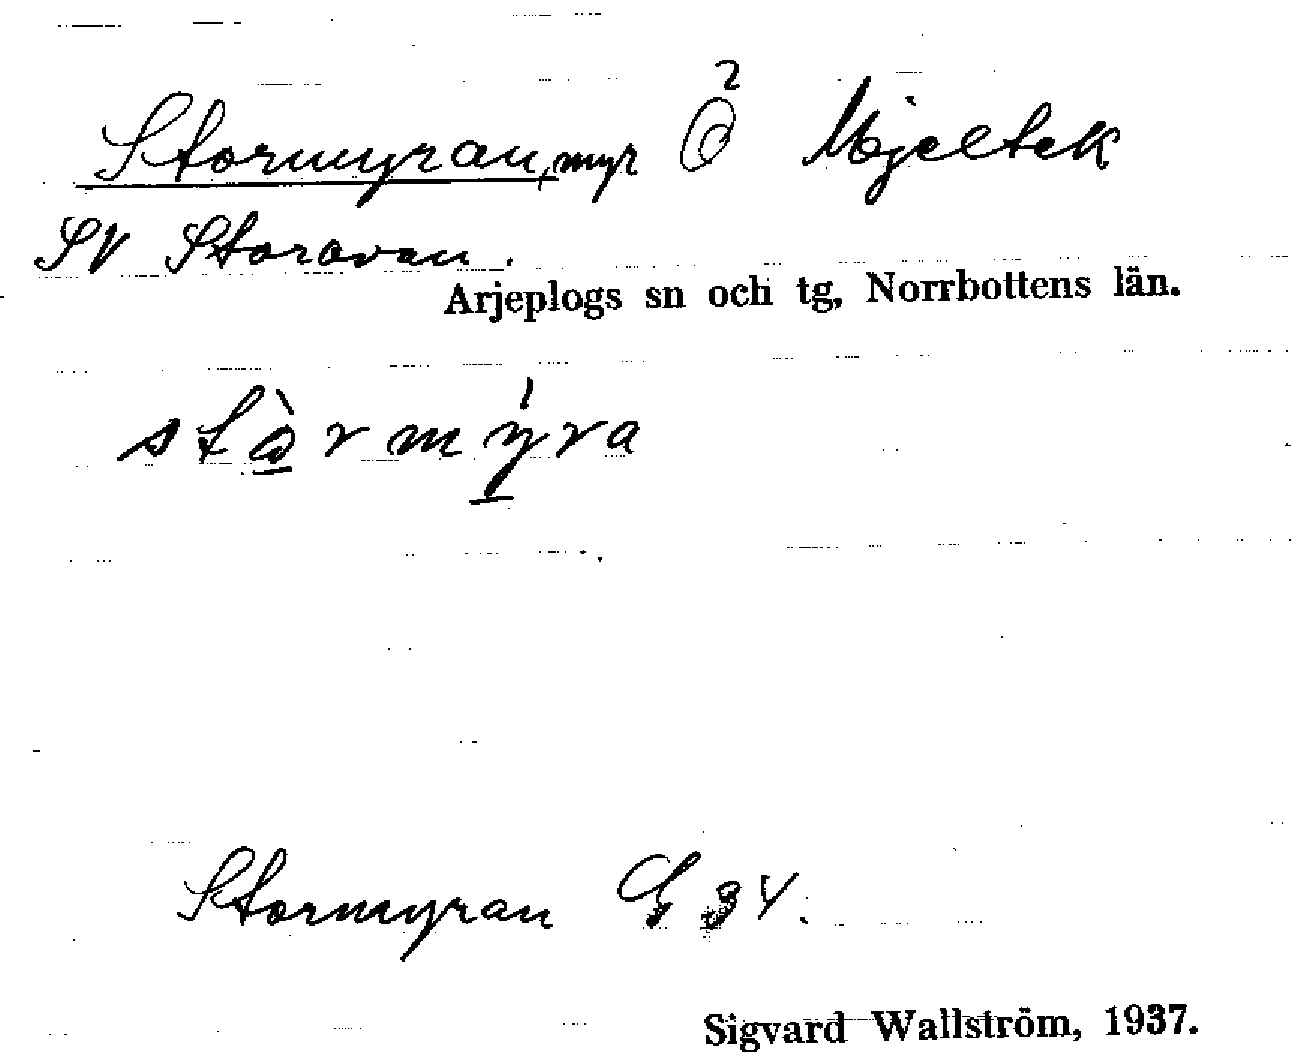 Stormyran, myr Ö Mjeltek
SV Storavan.
Arjeplogs sn och tg, Norrbottens län.
stòrmýra
Stormyran G 34.
Sigvard Wallström, 1937.